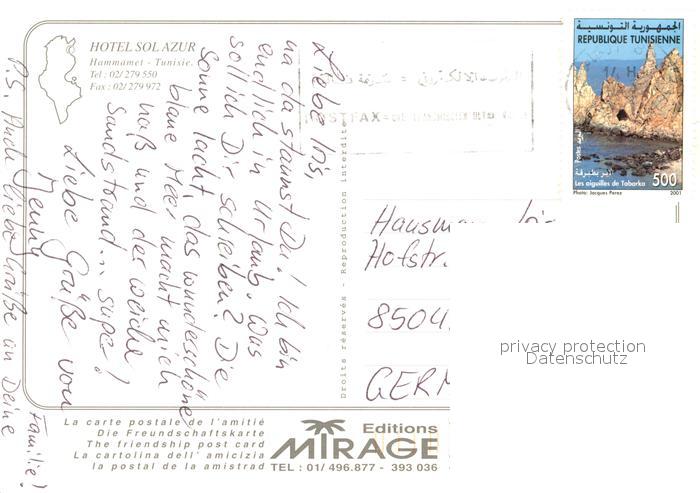 HOTEL SOL AZUR
Hammamet - Tunisie.
Tel : 02/ 279 550
Fax : 02/ 279 972
Liebe Iris,
na da staunst Du! Ich bin
endlich in Urlaub. Was
soll ich Dir schreiben? Die
Sonne lacht, das wunderschöne
blaue Meer macht mich
naß und der weiche
Sandstrand... super!
Liebe Grüße von
Jenny
P.S. Auch liebe Grüße an Deine
Familie!
Droits réservés - Reproduction interdite
الجمهورية التونسية
REPUBLIQUE TUNISIENNE
البريد Postes
أبر بطبرقة
Les aiguilles de Tabarka
500
Photo: Jacques Perez
2001
Hofstr.
8504
GERM
privacy protection
Datenschutz
La carte postale de l'amitié
Die Freundschaftskarte
The friendship post card
La cartolina dell' amicizia
la postal de la amistrad
Editions
MIRAGE
TEL : 01/ 496.877 - 393 036